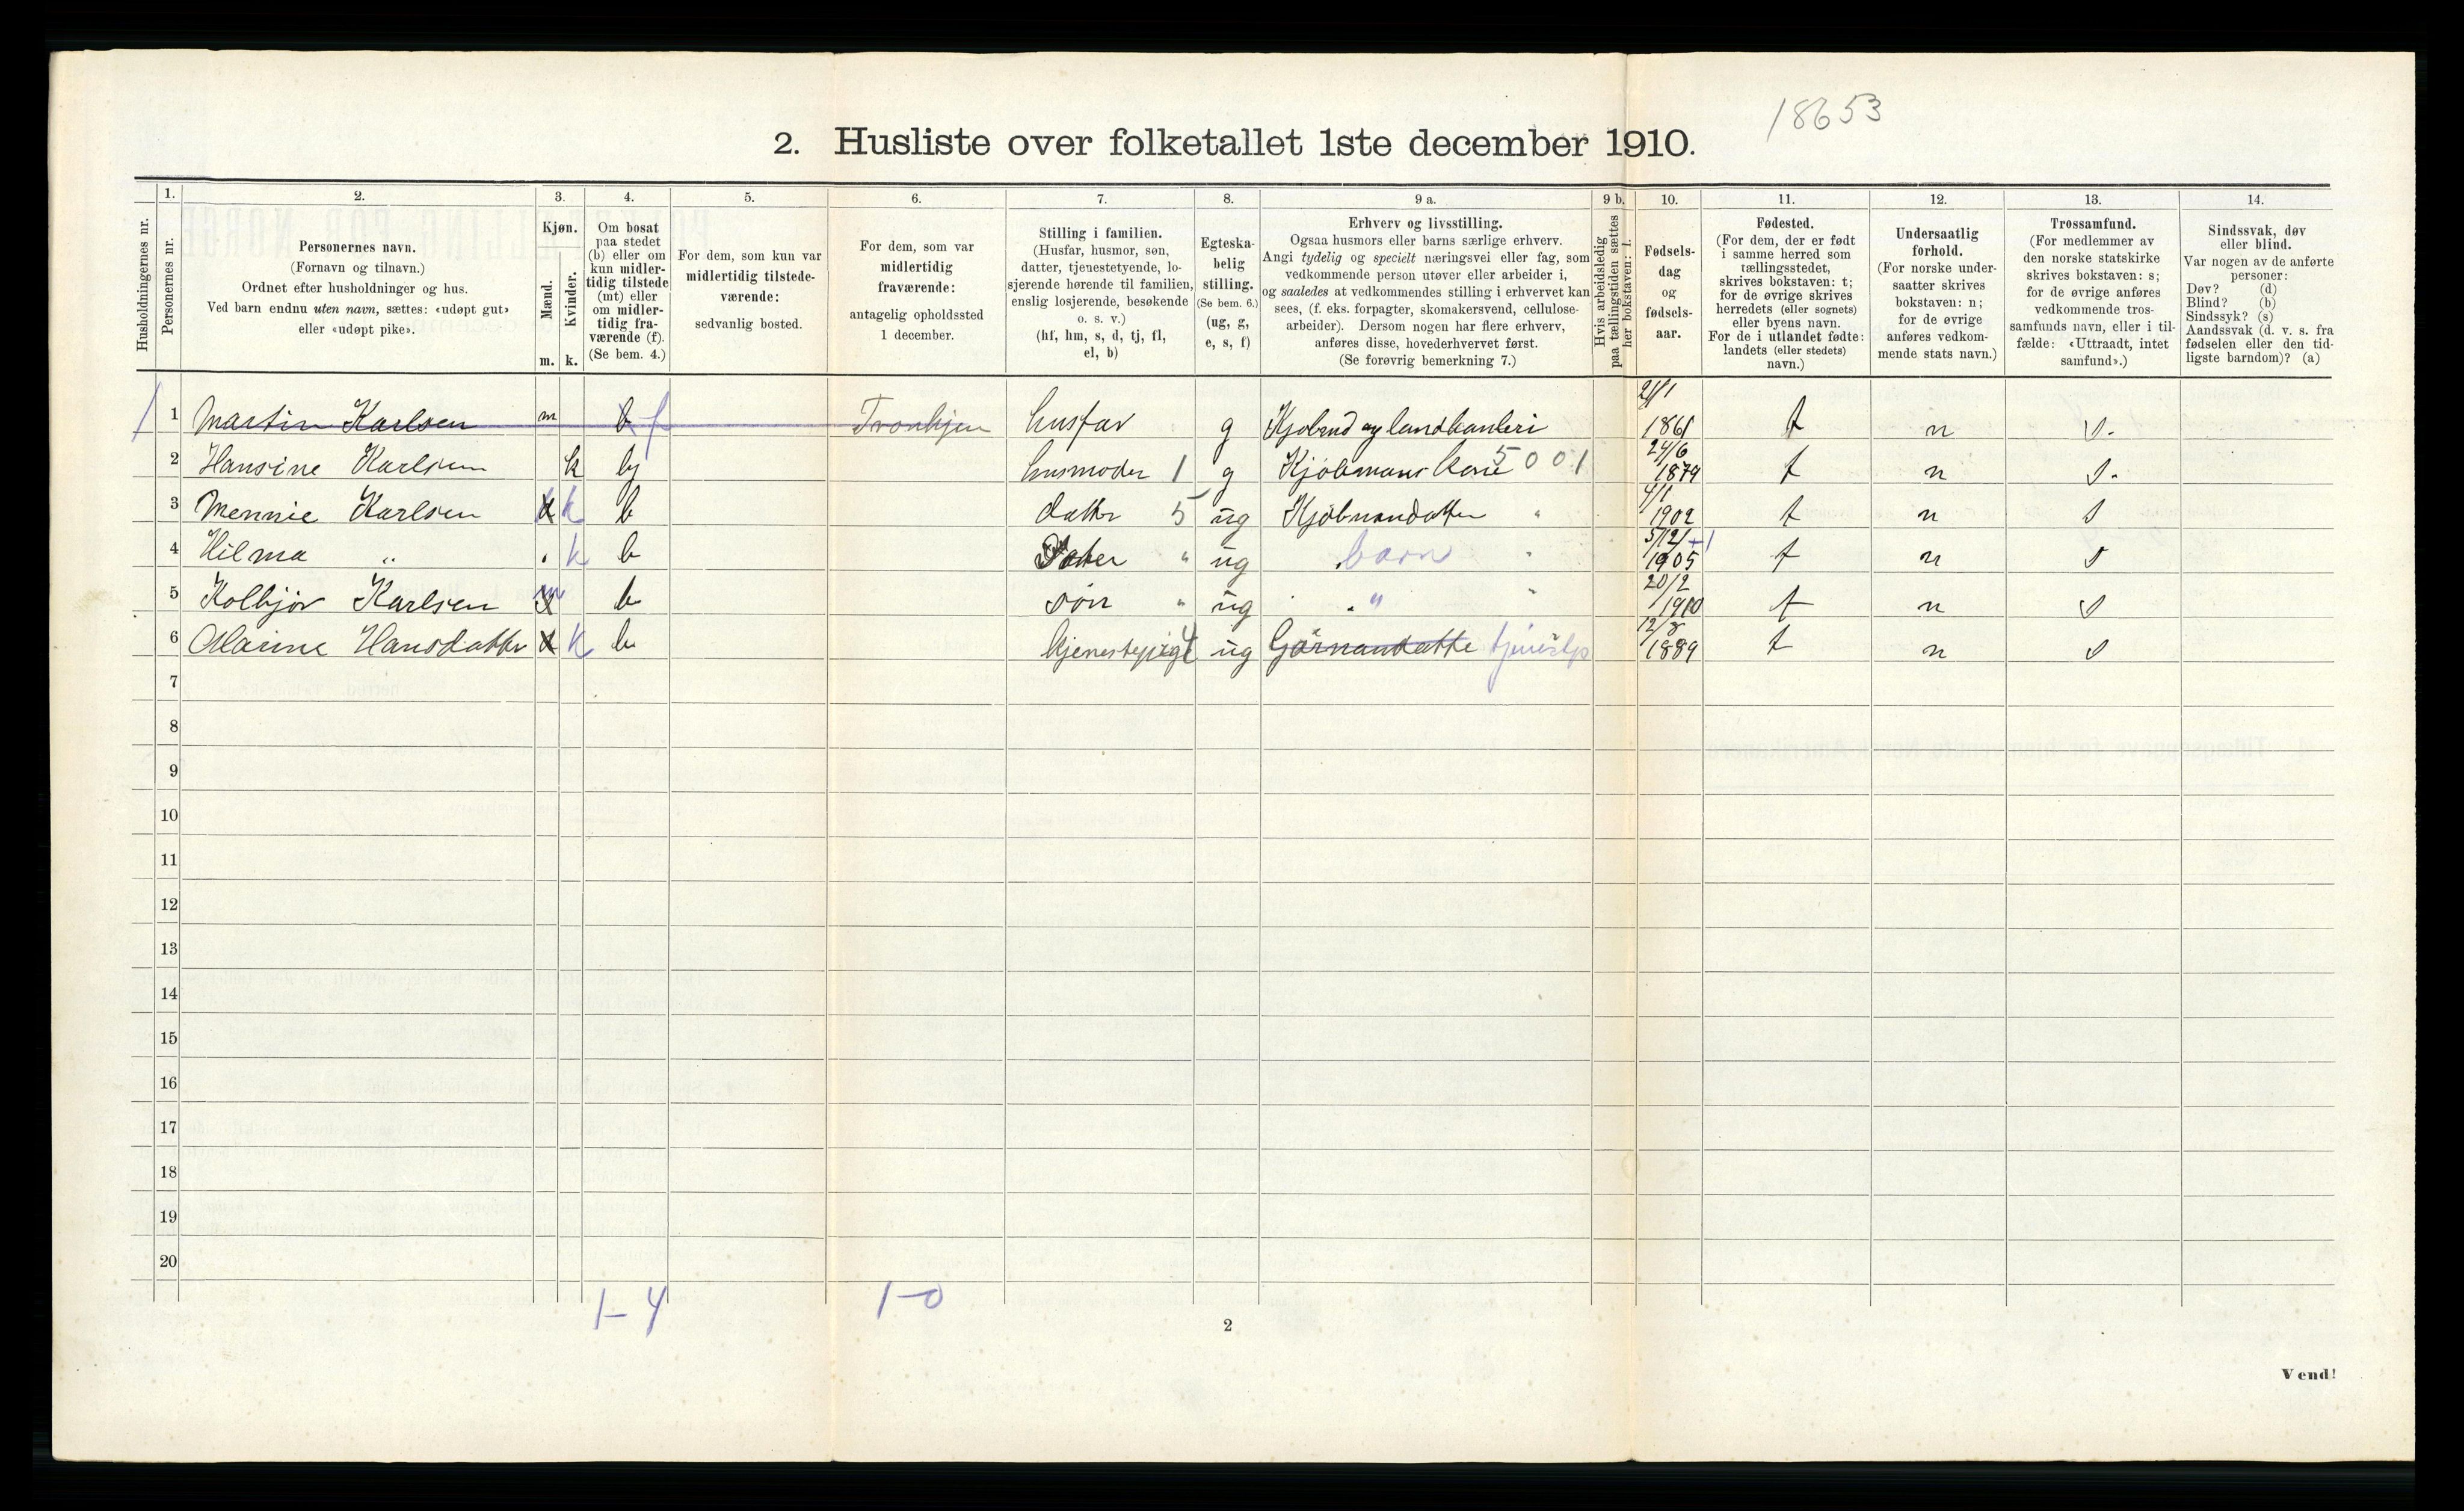 18653
2. Husliste over folketallet 1ste december 1910.
Husholdningernes nr.
1.
Personernes nr.
2.
Personernes navn.
(Fornavn og tilnavn.)
Ordnet efter husholdninger og hus.
Ved barn endnu uten navn, sættes: «udøpt gut»
eller «udøpt pike».
3.
Kjøn.
Mænd.
Kvinder.
m. k.
4.
Om bosat
paa stedet
(b) eller om
kun midler-
tidig tilstede
(mt) eller
om midler-
tidig fra-
værende (f).
(Se bem. 4.)
5.
For dem, som kun var
midlertidig tilstede-
værende:
sedvanlig bosted.
6.
For dem, som var
midlertidig
fraværende:
antagelig opholdssted
1 december.
7.
Stilling i familien.
(Husfar, husmor, søn,
datter, tjenestetyende, lo-
sjerende hørende til familien,
enslig losjerende, besøkende
o. s. v.)
(hf, hm, s, d, tj, fl,
el, b)
8.
Egteska-
belig
stilling.
(Se bem. 6.)
(ug, g,
e, s, f)
9 a.
Erhverv og livsstilling.
Ogsaa husmors eller barns særlige erhverv.
Angi tydelig og specielt næringsvei eller fag, som
vedkommende person utøver eller arbeider i,
og saaledes at vedkommendes stilling i erhvervet kan
sees, (f. eks. forpagter, skomakersvend, cellulose-
arbeider). Dersom nogen har flere erhverv,
anføres disse, hovederhvervet først.
(Se forøvrig bemerkning 7.)
9 b.
Hvis arbeidsledig
paa tællingstiden sættes
her bokstaven: l.
10.
Fødsels-
dag
og
fødsels-
aar.
11.
Fødested.
(For dem, der er født
i samme herred som
tællingsstedet,
skrives bokstaven: t;
for de øvrige skrives
herredets (eller sognets)
eller byens navn.
For de i utlandet fødte:
landets (eller stedets)
navn.)
12.
Undersaatlig
forhold.
(For norske under-
saatter skrives
bokstaven: n;
for de øvrige
anføres vedkom-
mende stats navn.)
13.
Trossamfund.
(For medlemmer av
den norske statskirke
skrives bokstaven: s;
for de øvrige anføres
vedkommende tros-
samfunds navn, eller i til-
fælde: «Uttraadt, intet
samfund».)
14.
Sindssvak, døv
eller blind.
Var nogen av de anførte
personer:
Døv? (d)
Blind? (b)
Sindssyk? (s)
Aandssvak (d. v. s. fra
fødselen eller den tid-
ligste barndom)? (a)
1 1 Martin Karlsen m b f Tronhjen husfar g 21/1 1861 t n s.
2 Hansine Karlsen k by husmoder 1 g Kjøbmans kone 5001 24/6 1879 t n s.
3 Mennie Karlsen k b datter 5 ug Kjøbmandatter " 4/1 1902 t n s
4 Hilma " k b Datter " ug barn " 5/12 +1 1905 t n s
5 Kolbjør Karlsen m b søn " ug " " 20/2 1910 t n s
6 Hansdatter k b tjenestepige 4 ug tjenestep 12/8 1889 t n s
7
8
9
10
11
12
13
14
15
16
17
18
19
20
1-4 1-0
2
Vend!